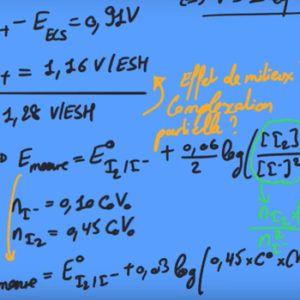 + - E_ECS = 0,91V
+ = 1,16 V/ESH
1,28 V/ESH
Effet de milieux
Complexation
partielle ?
E_mesure = E°_I2/I- + 0,06/2 log([I2]/[I-]²
n_I- = 0,10 CoVo
n_I2 = 0,45 CoVo
mesure = E°_I2/I- + 0,03 log(0,45×C°×(V